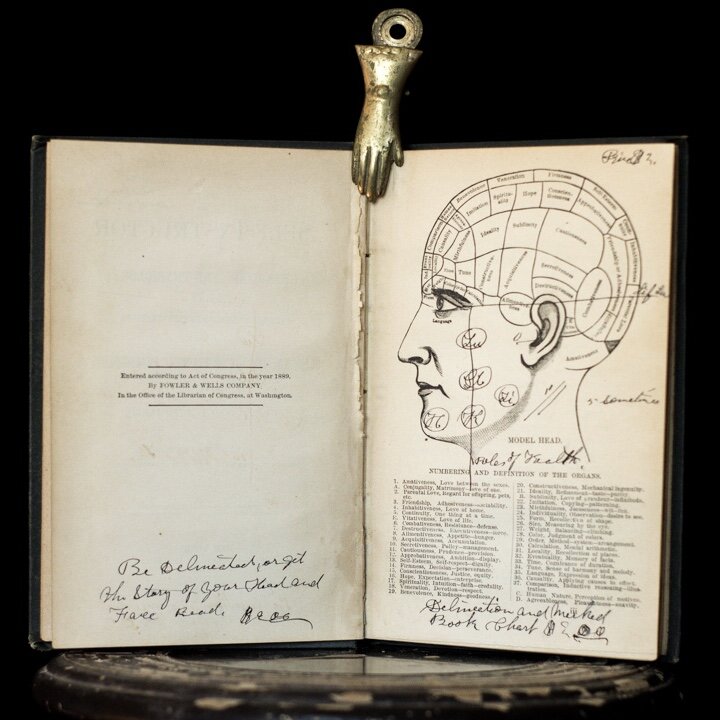 Entered according to Act of Congress, in the year 1889,
By FOWLER & WELLS COMPANY,
In the Office of the Librarian of Congress, at Washington.
Be Delineated, or get
the Story of your Head and
Face Read.
Benevolence
Veneration
Firmness
Self-Esteem
Imitation
Spiritu-ality
Hope
Conscien-tiousness
Approbativeness
Inhabitiveness
Causality
Mirthfulness
Ideality
Sublimity
Cautiousness
Time
Tune
Acquisitiveness
Secretiveness
Destructiveness
Combativeness
Amativeness
Form
Language
sometimes
MODEL HEAD.
of Health.
NUMBERING AND DEFINITION OF THE ORGANS.
1. Amativeness, Love between the sexes.
A. Conjugality, Matrimony—love of one.
2. Parental Love, Regard for offspring, pets, etc.
3. Friendship, Adhesiveness—sociability.
4. Inhabitiveness, Love of home.
5. Continuity, One thing at a time.
E. Vitativeness, Love of life.
6. Combativeness, Resistance—defense.
7. Destructiveness, Executiveness—force.
8. Alimentiveness, Appetite—hunger.
9. Acquisitiveness, Accumulation.
10. Secretiveness, Policy—management.
11. Cautiousness, Prudence—provision.
12. Approbativeness, Ambition—display.
13. Self-Esteem, Self-respect—dignity.
14. Firmness, Decision—perseverance.
15. Conscientiousness, Justice, equity.
16. Hope, Expectation—enterprise.
17. Spirituality, Intuition—faith—credulity.
18. Veneration, Devotion—respect.
19. Benevolence, Kindness—goodness.
20. Constructiveness, Mechanical ingenuity.
21. Ideality, Refinement—taste—purity.
B. Sublimity, Love of grandeur—infinitude.
22. Imitation, Copying—patterning.
23. Mirthfulness, Jocoseness—wit—fun.
24. Individuality, Observation—desire to see.
25. Form, Recollection of shape.
26. Size, Measuring by the eye.
27. Weight, Balancing—climbing.
28. Color, Judgment of colors.
29. Order, Method—system—arrangement.
30. Calculation, Mental arithmetic.
31. Locality, Recollection of places.
32. Eventuality, Memory of facts.
33. Time, Cognizance of duration.
34. Tune, Sense of harmony and melody.
35. Language, Expression of ideas.
36. Causality, Applying causes to effect.
37. Comparison, Inductive reasoning—illustration.
C. Human Nature, Perception of motives.
D. Agreeableness, Pleasantness—suavity.
Delineation and Marked
Book Chart